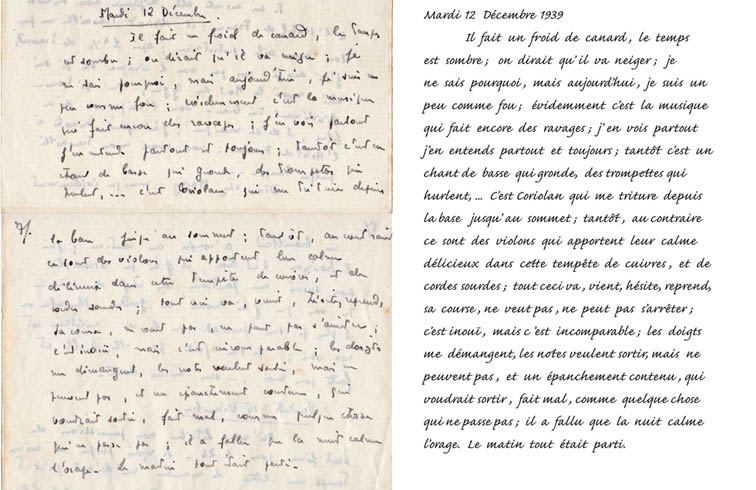 Mardi 12 Décembre.
Il fait un froid de canard, le temps
est sombre ; on dirait qu'il va neiger ; je
ne sais pourquoi, mais aujourd'hui, je suis un
peu comme fou ; évidemment c'est la musique
qui fait encore des ravages ; j'en vois partout
j'en entends partout et toujours ; tantôt c'est un
chant de basse qui gronde, des trompettes qui
hurlent, ... c'est Coriolan qui me triture depuis
7/. la base jusqu'au sommet ; tantôt, au contraire
ce sont des violons qui apportent leur calme
délicieux dans cette tempête de cuivres, et de
cordes sourdes ; tout ceci va, vient, hésite, reprend,
sa course, ne veut pas, ne peut pas s'arrêter ;
c'est inouï, mais c'est incomparable ; les doigts
me démangent, les notes veulent sortir, mais ne
peuvent pas, et un épanchement contenu, qui
voudrait sortir, fait mal, comme quelque chose
qui ne passe pas ; il a fallu que la nuit calme
l'orage. Le matin tout était parti.
Mardi 12 Décembre 1939
Il fait un froid de canard, le temps
est sombre ; on dirait qu'il va neiger ; je
ne sais pourquoi, mais aujourd'hui, je suis un
peu comme fou ; évidemment c'est la musique
qui fait encore des ravages ; j'en vois partout
j'en entends partout et toujours ; tantôt c'est un
chant de basse qui gronde, des trompettes qui
hurlent, ... C'est Coriolan qui me triture depuis
la base jusqu'au sommet ; tantôt, au contraire
ce sont des violons qui apportent leur calme
délicieux dans cette tempête de cuivres, et de
cordes sourdes ; tout ceci va, vient, hésite, reprend,
sa course, ne veut pas, ne peut pas s'arrêter ;
c'est inouï, mais c'est incomparable ; les doigts
me démangent, les notes veulent sortir, mais ne
peuvent pas, et un épanchement contenu, qui
voudrait sortir, fait mal, comme quelque chose
qui ne passe pas ; il a fallu que la nuit calme
l'orage. Le matin tout était parti.